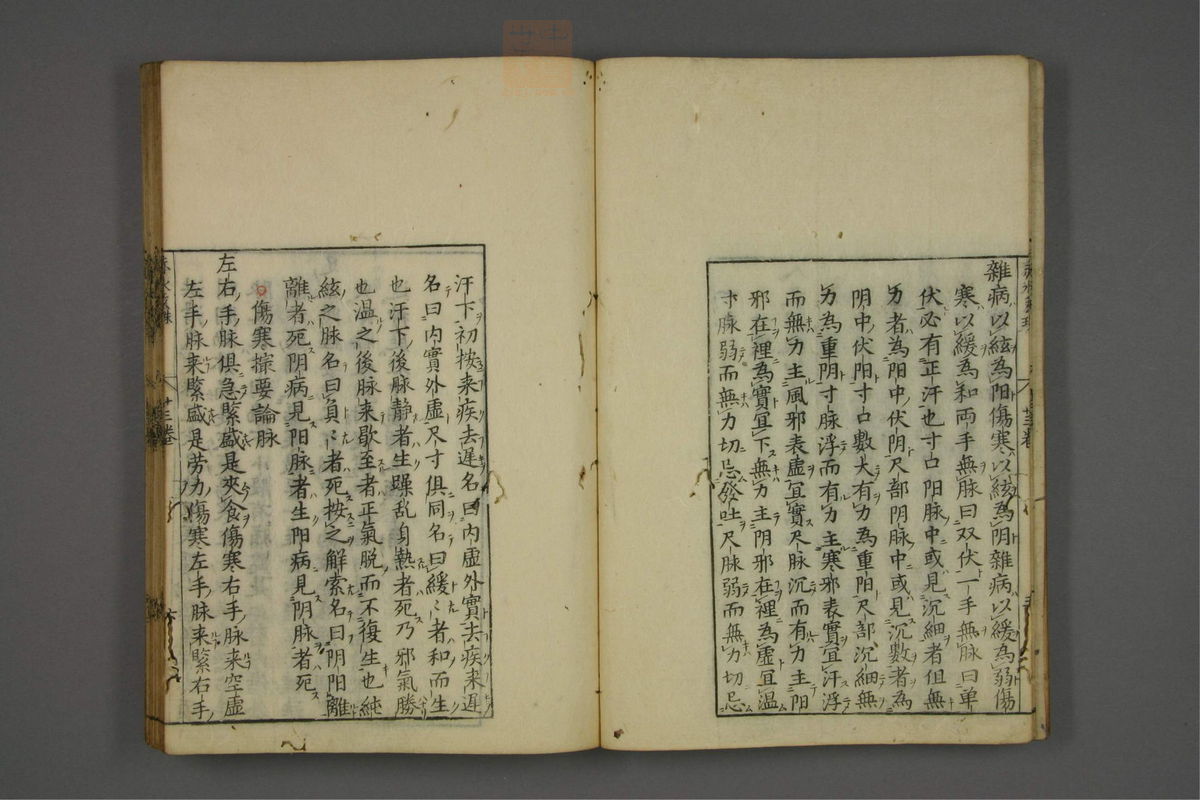 雜病以絃為阳傷寒以絃為阴雜病以緩為弱傷
寒以緩為和両手無脉曰双伏一手無脉曰单
伏必有正汗也寸口阳脉中或見沉細者但無
力者為阳中伏阴尺部阴脉中或見沉數者為
阴中伏阳寸口數大有力為重阳尺部沉細無
力為重阴寸脉浮而有力主寒邪表實宜汗浮
而無力主風邪表虚宜實尺脉沉而有力主阳
邪在裡為實宜下無力主阴邪在裡為虚宜温
寸脉弱而無力切忌發吐尺脉弱而無力切忌
汗下初按来疾去遅名曰内虚外實去疾来遅
名曰内實外虚尺寸俱同名曰緩〻者和而生
也汗下後脉静者生躁乱身熱者死乃邪氣勝
也温之後脉来歇至者正氣脱而不復生也純
絃之脉名曰負〻者死按之解索名曰阴阳離
離者死阴病見阳脉者生阳病見阴脉者死
傷寒撮要論脉
左右手脉俱急緊盛是夾食傷寒右手脉来空虚
左手脉来緊盛是劳力傷寒左手脉来緊右手